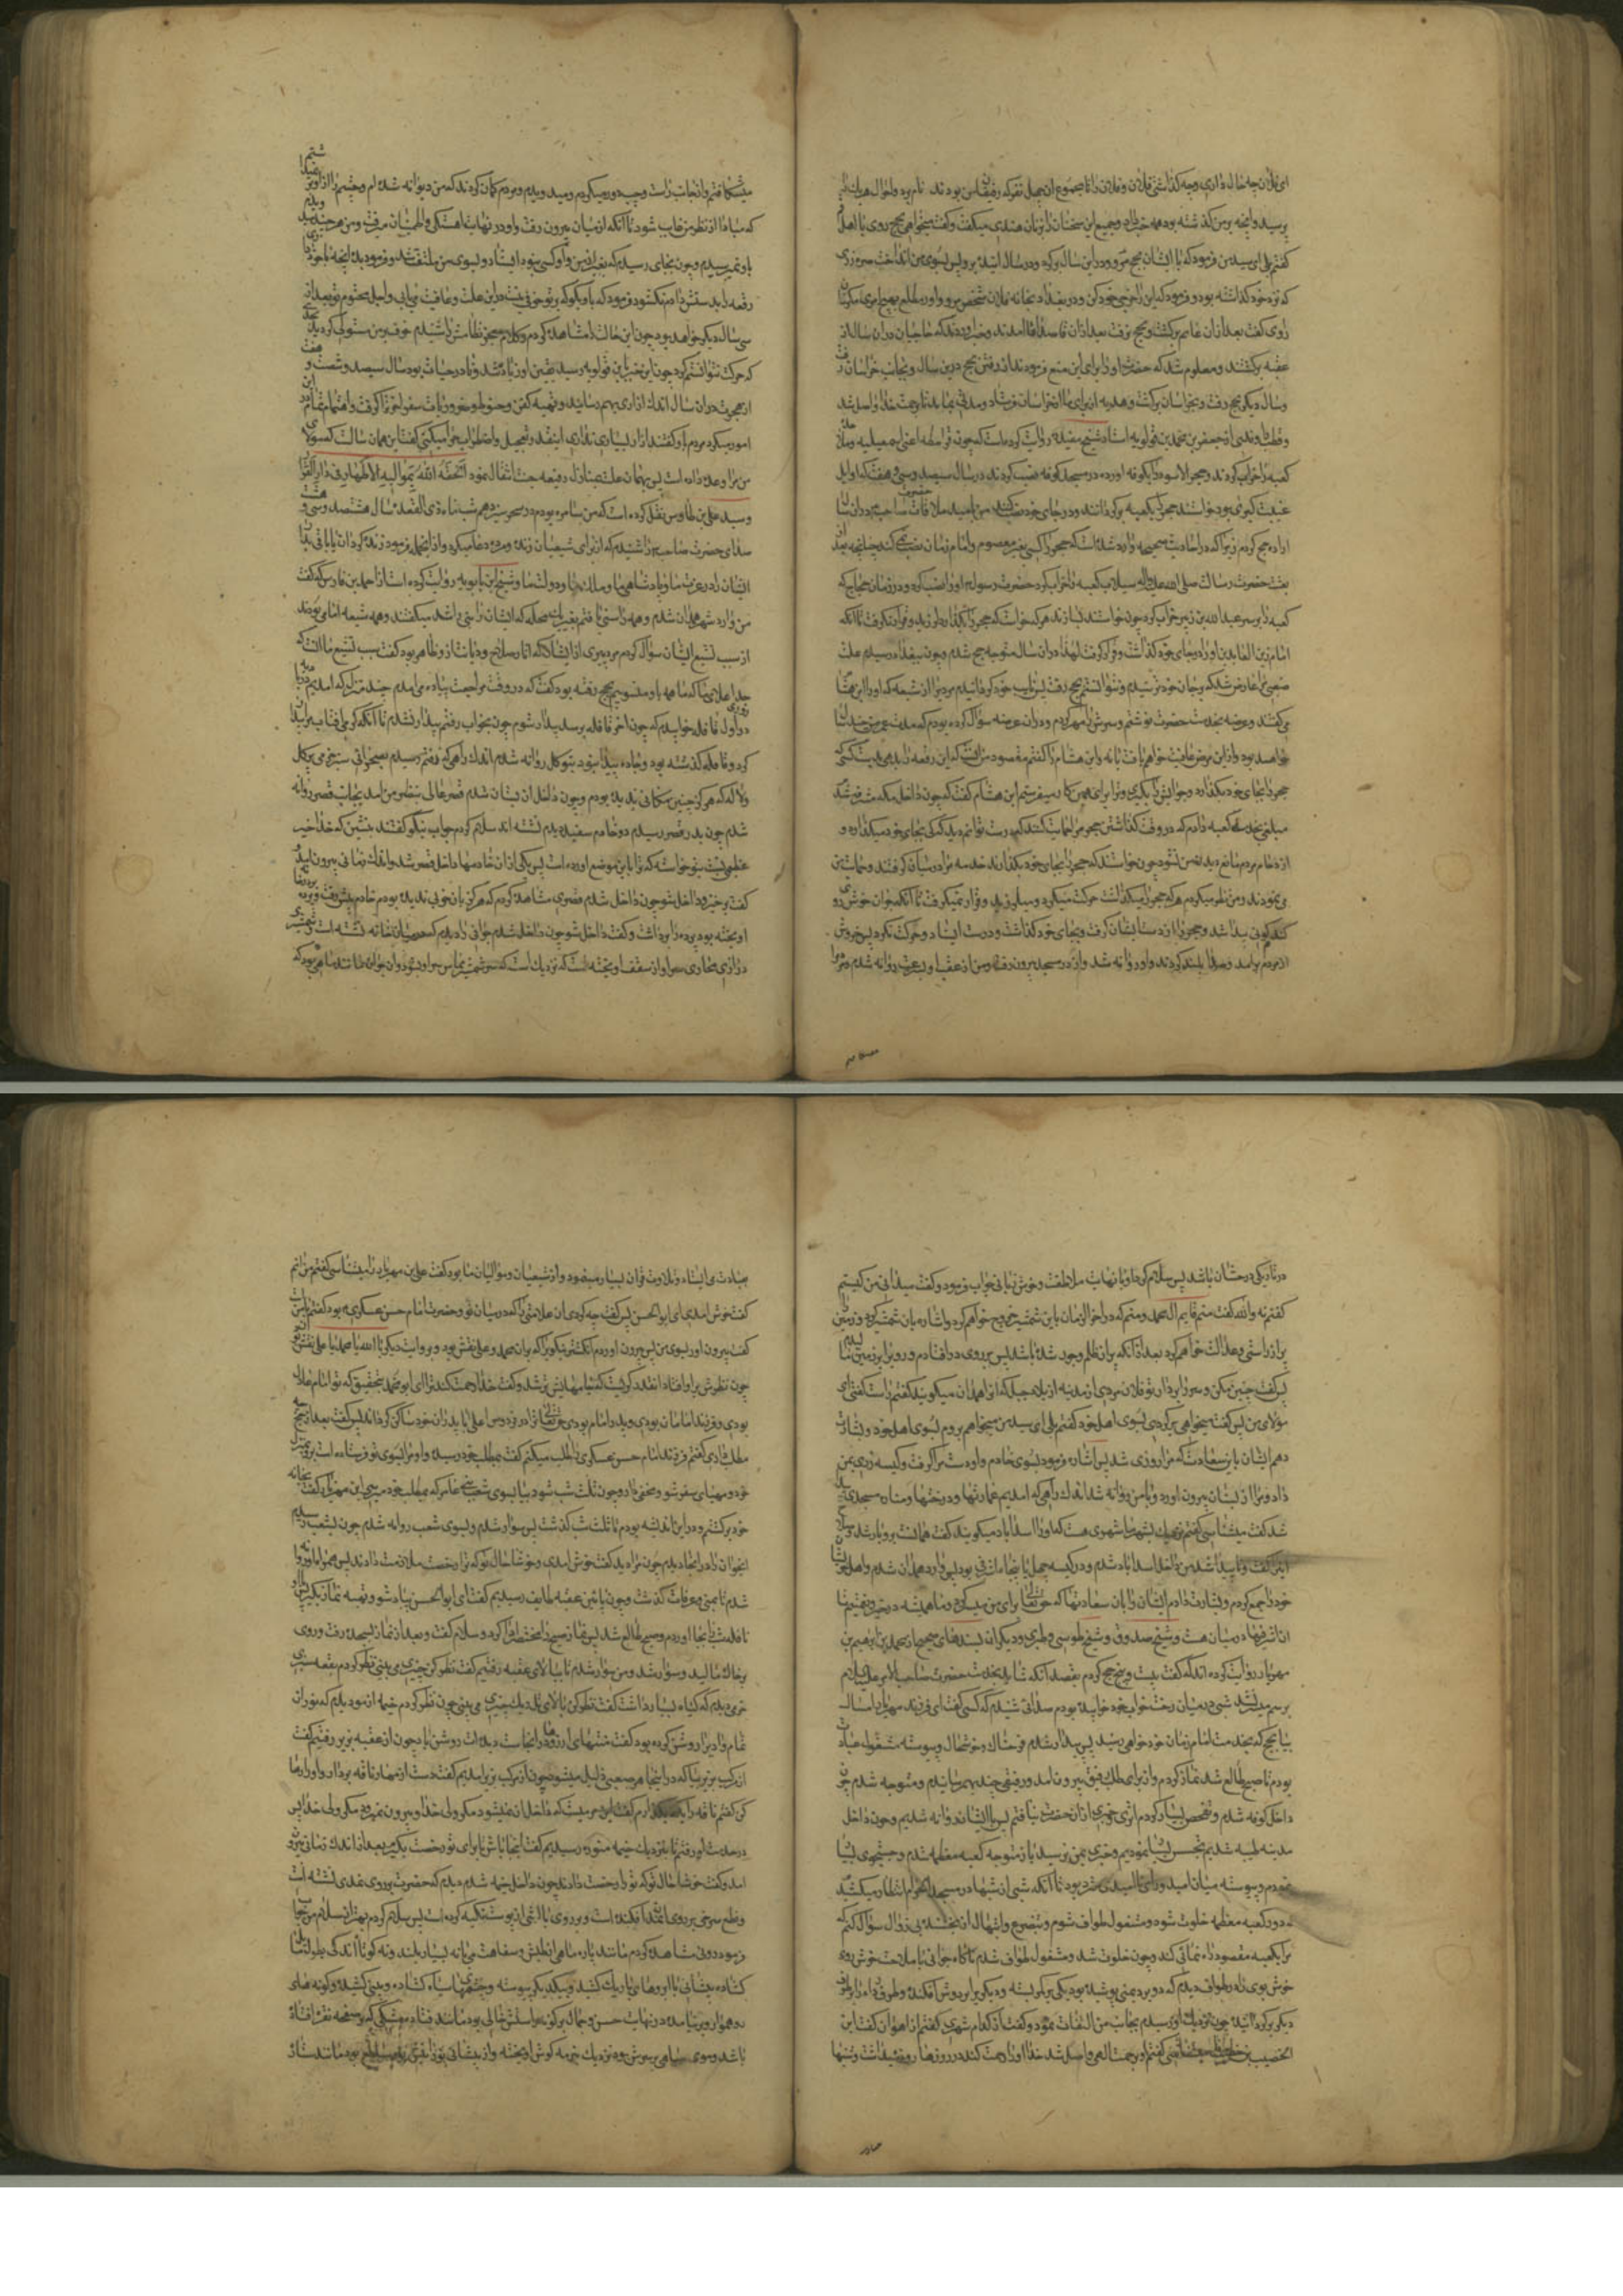 ای فلان چه حال داری و چه گذاشتی فلان و فلان را تا مجموع ان چهل نفر که رفیقان من بودند نام برد و احوال هر یک را
پرسید و انچه بر من گذشته بود همه را و جمیع این سخنان را بزبان هندی میگفت و گفت میخواهی بحج روی با اهل قم
گفتم بلی ای سید من فرمود که با ایشان بحج مرو و در این سال برگرد و در سال اینده برو پس بسوی من انداخت صره زری
که نزد خود گذاشته بود و فرمود که این را خرجی خود کن و در بغداد بخانه فلان شخص مرو و او را مطلع بهیچ امری مگردان
راوی گفت بعد از ان غانم برگشت و بحج نرفت بعد از ان قاصدان امدند و خبر اوردند که حاجیان در ان سال از
عقبه برگشتند و معلوم شد که حضرت او را برای این منع فرمودند از رفتن بحج درین سال و بجانب خراسان رفت
و سال دیگر بحج رفت و بخراسان برگشت و هدیه از برای ما از خراسان فرستاد و مدتی بماند تا برحمت خدا واصل شد
و قطب راوندی از جعفر بن محمد بن قولویه استاد شیخ مفید روایت کرده است که چون قرامطه اعنی اسمعیلیه ملاحده
کعبه را خراب کردند و حجر الاسود را بکوفه اورده در مسجد کوفه نصب کردند در سال سیصد و سی و هفت که اوایل
غیبت کبری بود خواستند حجر را بکعبه برگردانند و در جای خود نصب کنند من بامید ملاقات حضرت صاحب در ان سال
اراده حج کردم زیرا که در احادیث صحیحه وارد شده است که حجر را کسی بغیر معصوم و امام زمان نصب نمی کند چنانچه قبل از
بعثت حضرت رسالت صلی الله علیه واله سیلاب کعبه را خراب کرد حضرت رسول او را نصب کرد و در زمان حجاج که
کعبه را بر سر عبد الله بن زبیر خراب کرد چون خواستند بسازند هر که خواست که حجر را بگذارد لرزید و قرار نگرفت تا انکه
امام زین العابدین او را بجای خود گذاشت و قرار گرفت لهذا در ان سال متوجه حج شدم و چون ببغداد رسیدم علت
صعبی مرا عارض شد که بر جان خود ترسیدم و نتوانستم بحج رفت پس نایب خود گردانیدم مردی را از شیعه که او را ابن هشام
می گفتند و عریضه بخدمت حضرت نوشتم و سرش را مهر کردم و در ان عریضه سؤال کرده بودم که مدت عمر من چند سال
خواهد بود و از این مرض عافیت خواهم یافت یا نه و ابن هشام را گفتم مقصود من انست که این رقعه را بدهی بدست کسی که
حجر را بجای خود میگذارد و جوابش را بگیری و ترا برای همین کار میفرستم ابن هشام گفت که چون داخل مکه مشرفه شدم
مبلغی بخدمه کعبه دادم که در وقت گذاشتن حجر مرا حمایت کنند که بتوانم درست دید که کی بجای خود میگذارد و
ازدحام مردم مانع دیدن من نشود چون خواستند که حجر را بجای خود بگذارند خدمه مرا در میان گرفتند و حمایت من
می نمودند و من نظر میکردم هر که حجر را میگذاشت حرکت میکرد و میلرزید و قرار نمیگرفت تا انکه جوان خوش روی
گندم گونی پیدا شد و حجر را از دست ایشان گرفت و بجای خود گذاشت و درست ایستاد و حرکت نکرد پس خروش
از مردم برامد و صدا بلند کردند و او روانه شد و از در مسجد بیرون رفت و من از عقب او بسرعت روانه شدم و مردم را
میشکافتم و از جانب راست و چپ دور میکردم و میدویدم و مردم گمان کردند که من دیوانه شده ام و چشم را از او بر نمیداشتم
که مبادا از نظر من غایب شود تا انکه از میان بیرون رفت و او در نهایت اهستگی و اطمینان میرفت و من هر چند میدویدم
باو نمیرسیدم و چون بجای رسیدم که بغیر از من و او کسی نبود ایستاد و بسوی من ملتفت شد و فرمود بده انچه با خود داری
رقعه را بدستش دادم نگشود فرمود که باو بگو که بر تو خوفی نیست در این علت و عافیت می یابی و اجل محتوم تو بعد از
سی سال دیگر خواهد بود چون این حالت را مشاهده کردم و کلام معجز نظامش را شنیدم خوف بر من مستولی گردید بحدی
که حرکت نتوانستم کرد چون این خبر بابن قولویه رسید یقین او زیاده شد و تا در حیات بود سال سیصد و شصت و هفت
از هجرت در ان سال اندک ازاری بهم رسانید و تهیه کفن و حنوط و ضروریات سفر اخرت را گرفت و اهتمام تمام در این
امور میکرد مردم باو گفتند ازار بسیاری نداری اینقدر تعجیل و اضطراب چرا میکنی گفت این همان سالست که مولای
من مرا وعده داده است پس بهمان علت بمنازل رفیعه جنت انتقال نمود الحقه الله بموالیه الاطهار فی دار القرار
و سید علی بن طاوس نقل کرده است که من در سامره بودم در سحر سیزدهم شب ماه ذی القعده سال ششصد و سی و هشت
صدای حضرت صاحب را شنیدم که از برای شیعیان زنده و مرده دعا میکرد و از انجمله فرمود زنده گردان یا باقی بدار
ایشان را در عزت ما و پادشاهی ما و ملک ما و دولت ما و شیخ ابن بابویه روایت کرده است از احمد بن فارس که گفت
من وارد شهر همدان شدم و همه را سنی یافتم بغیر یک محله که ایشان را بنی راشد میگفتند و همه شیعه امامی بودند
از سبب تشیع ایشان سؤال کردم مرد پیری از ایشان که اثار صلاح و دیانت از او ظاهر بود گفت سبب تشیع ما انست که
جد اعلای ما که ما همه باو منسوبیم بحج رفته بود گفت که در وقت مراجعت پیاده می امدم چند منزل که امدیم در بادیه روزی
در اول قافله خوابیدم که چون اخر قافله برسد بیدار شوم چون بخواب رفتم بیدار نشدم تا انکه گرمی افتاب مرا بیدار
کرد و قافله گذشته بود و جاده پیدا نبود بتوکل روانه شدم اندک راهی که رفتم رسیدم بصحرای سبز و خرمی پر گل
و لاله که هرگز چنین مکانی ندیده بودم و چون داخل ان بستان شدم قصر عالی بنظر من امد بجانب قصر روانه
شدم چون بدر قصر رسیدم دو خادم سفید دیدم نشسته اند سلام کردم جواب نیکو گفتند بنشین که خدا خیر
عظیمی نسبت بتو خواسته که ترا باین موضع اورده است پس یکی از ان خادمها داخل قصر شد و اندک زمانی بیرون امد و
گفت برخیز و داخل شو چون داخل شدم قصری مشاهده کردم که هرگز بان خوبی ندیده بودم خادم پیش رفت و پرده بر در خانه
اویخته بود پرده را برداشت و گفت داخل شو چون داخل شدم جوانی را دیدم که در میان خانه نشسته است و شمشیر
درازی محاذی سر او از سقف اویخته است که نزدیک است که سر شمشیر مماس سر او شود و ان جوان مانند ماهی بود که
در تاریکی درخشان باشد پس سلام کردم و با نهایت ملاطفت و خوش زبانی جواب فرمود و گفت میدانی من کیستم
گفتم نه والله گفت منم قایم ال محمد و منم که در اخر الزمان باین شمشیر خروج خواهم کرد و اشاره بان شمشیر کرد و زمین را
پر از راستی و عدالت خواهم کرد بعد از انکه پر از ظلم و جور شده باشد پس بر روی در افتادم و رو را بر زمین مالیدم
پس گفت چنین مکن و سر را بردار تو فلان مردی از مدینه از بلاد جبل که انرا همدان میگویند گفتم راست گفتی ای
مولای من پس گفت میخواهی برگردی بسوی اهل خود گفتم بلی ای سید من میخواهم بروم بسوی اهل خود و بشارت
دهم ایشان را باین سعادت که مرا روزی شد پس اشاره فرمود بسوی خادم و او دست مرا گرفت و کیسه زری بمن
داد و مرا از بستان بیرون اورد و با من روانه شد اندک راهی که امدیم عمارتها و درختها و مناره مسجدی پیدا
شد گفت میشناسی گفتم نزدیک بشهر ما شهری هست که او را اسداباد میگویند گفت همانست برو با رشد و صلاح
این گفت و ناپیدا شد من داخل اسداباد شدم و در کیسه چهل یا پنجاه اشرفی بود پس وارد همدان شدم و اهل خویشان
خود را جمع کردم و بشارت دادم ایشان را بان سعادتها که حق تعالی برای من میسر کرد و ما همیشه در خیر و نعمتیم تا
ان اشرفیها در میان ماست و شیخ صدوق و شیخ طوسی و طبری و دیگران بسندهای صحیح از محمد بن ابراهیم بن
مهزیار روایت کرده اند که گفت بیست حج کردم بقصد انکه شاید بخدمت حضرت صاحب الامر علیه السلام
برسم میسر نشد شبی در میان رخت خواب خود خوابیده بودم صدائی شنیدم که کسی گفت ای فرزند مهزیار امسال
بیا بحج که بخدمت امام زمان خود خواهی رسید پس بیدار شدم فرحناک و خوشحال و پیوسته مشغول عبادت
بودم تا صبح طالع شد نماز کردم و از برای طلب رفیق بیرون امدم و رفیقی چند بهم رسانیدم و متوجه شدم چون
داخل کوفه شدم و تفحص بسیار کردم اثری و خبری از ان حضرت نیافتم پس با ایشان روانه شدیم و چون داخل
مدینه طیبه شدیم تجسس بسیار نمودیم و خبری بمن نرسید باز متوجه کعبه معظمه شدم و جستجوی بسیار
نمودم و پیوسته میان امید و نا امیدی متردد بودم تا انکه شبی از شبها در مسجد الحرام انتظار میکشیدم
که دور کعبه معظمه خلوت شود و مشغول طواف شوم و بتضرع و ابتهال از بخشنده بی زوال سؤال کنم که
مرا بکعبه مقصود راه نمائی کند و چون خلوت شد و مشغول طواف شدم ناگاه جوانی با ملاحت خوش روی
خوش بوی را در طواف دیدم که دو برد یمنی پوشیده بود یکی بر کمر بسته و دیگری را بر دوش افکنده و طرف ردا را بر دوش
دیگر برگردانیده چون نزدیک او رسیدم بجانب من التفات نمود و گفت از کدام شهری گفتم از اهواز گفت ابن
الخصیب را میشناسی گفتم او برحمت الهی واصل شد گفت خدا او را رحمت کند در روزها روزه میداشت و شبها
بعبادت می ایستاد و تلاوت قران بسیار مینمود و از شیعیان و موالیان ما بود گفت علی بن مهزیار را میشناسی گفتم من انم
گفت خوش امدی ای ابو الحسن پس گفت چه کردی ان علامتی را که در میان تو و حضرت امام حسن عسکری بود گفتم با منست
گفت بیرون اور بسوی من پس بیرون اوردم انگشتر نیکو را که بر ان محمد و علی نقش بود و بروایت دیگر یا الله یا محمد یا علی نقش ان بود
چون نظرش بر او افتاد انقدر گریست که جامهایش تر شد و گفت خدا رحمت کند ترا ای ابو محمد بتحقیق که تو امام عادل
بودی و فرزند امامان بودی و پدر امام بودی حق تعالی ترا در فردوس اعلی با پدران خود ساکن گرداند پس گفت بعد از حج چه
مطلب داری گفتم فرزند امام حسن عسکری را طلب میکنم گفت بمطلب خود رسیده و او مرا بسوی تو فرستاده است برو بمنزل
خود و مهیای سفر شو و مخفی دار و چون ثلث شب شود بیا بسوی شعب بنی عامر که بمطلب خود میرسی ابن مهزیار گفت بخانه
خود برگشتم و در این اندیشه بودم تا ثلث شب گذشت پس سوار شدم و بسوی شعب روانه شدم چون بشعب رسیدم
انجوان را در انجا دیدم چون مرا دید گفت خوش امدی و خوشا حال تو که ترا رخصت ملازمت دادند پس همراه او روانه
شدم تا بمنی و عرفات گذشت و چون بپائین عقبه طایف رسیدیم گفت ای ابو الحسن پیاده شو و تهیه نماز بگیر پس با او
نافله شب را بجا اوردم و صبح طالع شد پس نماز صبح را مختصر ادا کرد و سلام گفت و بعد از نماز بسجده رفت و روی
بر خاک مالید و سوار شد و من سوار شدم تا ببالای عقبه رفتیم گفت نظر کن چیزی می بینی نظر کردم بقعه سبز و خرمی
دیدم که گیاه بسیار داشت گفت نظر کن ببالای تل ریگ چیزی می بینی چون نظر کردم خیمه از مو دیدم که نور ان
تمام وادی را روشن کرده بود گفت منتهای ارزوها در انجاست دیده ات روشن باد چون از عقبه بزیر رفتیم گفت
از مرکب بزیر بیا که در اینجا هر صعبی ذلیل میشود چون از مرکب بزیر امدیم گفت دست از مهار ناقه بردار و او را رها
کن گفتم ناقه را بکه بگذارم گفت این حرمیست که داخل ان نمیشود مگر ولی خدا و بیرون نمیرود مگر ولی خدا پس
در خدمت او رفتم تا بنزدیک خیمه منوره رسیدیم گفت اینجا باش تا برای تو رخصت بگیرم بعد از اندک زمانی بیرون
امد و گفت خوشا حال تو که ترا رخصت دادند چون داخل خیمه شدم دیدم که حضرت بر روی نمدی نشسته است
و نطع سرخی بر روی نمد افکنده است و بر روی بالشی از پوست تکیه کرده است پس سلام کردم بهتر از سلام من جواب
فرمود روئی مشاهده کردم مانند پاره ماه از طیش و سفاهت مبرا نه بسیار بلند و نه کوتاه اندکی بطول مایل
گشاده پیشانی با ابروهای باریک کشیده و بیکدیگر پیوسته و چشمهای سیاه گشاده و بینی کشیده و گونه های
هموار بر نیامده در نهایت حسن و جمال بر گونه راستش خالی بود مانند فتات مشکی که بر صفحه نقره افتاده
باشد و موی سیاهی بر سرش بود نزدیک بنرمه گوش اویخته و از پیشانی نورانیش نور ساطع بود مانند ستاره